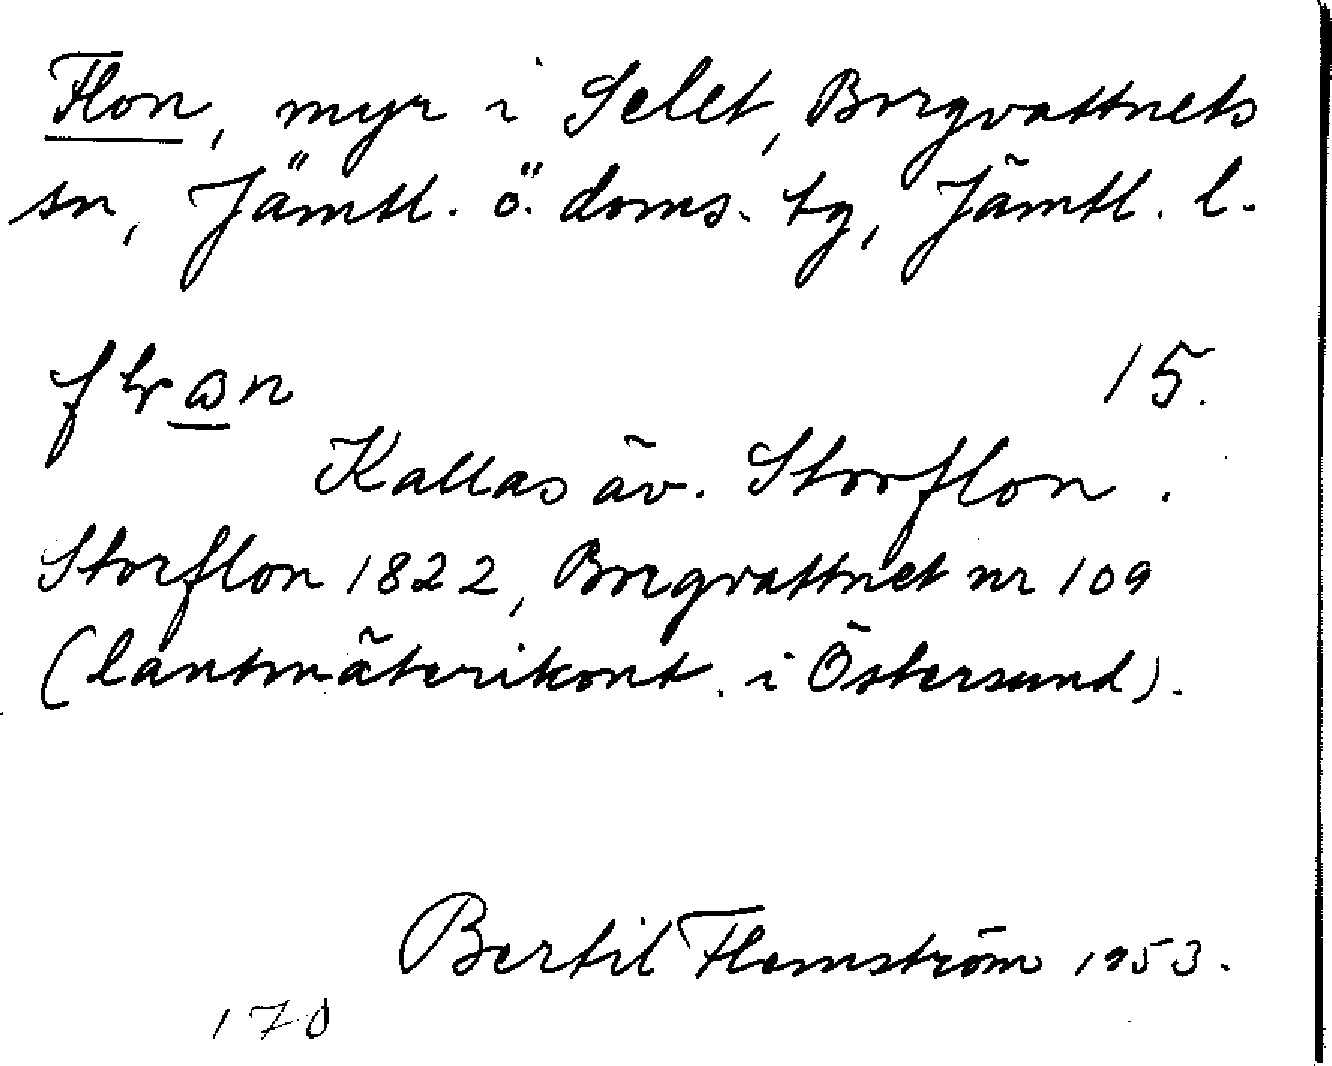 Flon, myr i Selet, Borgvattnets
sn, Jämtl. ö. doms. tg, Jämtl. l.
15.
Kallas äv. Storflon.
Storflon 1822, Borgvattnet nr 109
(lantmäterikont. i Östersund).
Bertil Flemström 1953.
170